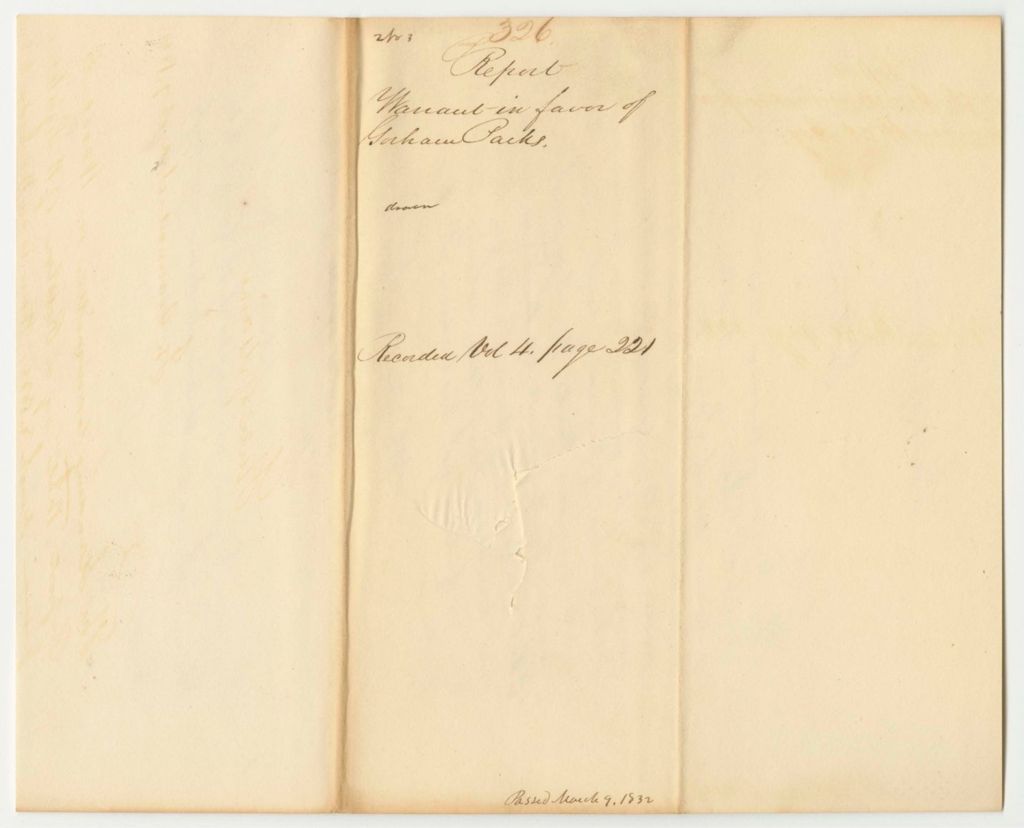 326
Report
Warrant in favor of
Gorham Parks.
drawn
Recorded Vol 4. page 221
Passed March 9, 1832